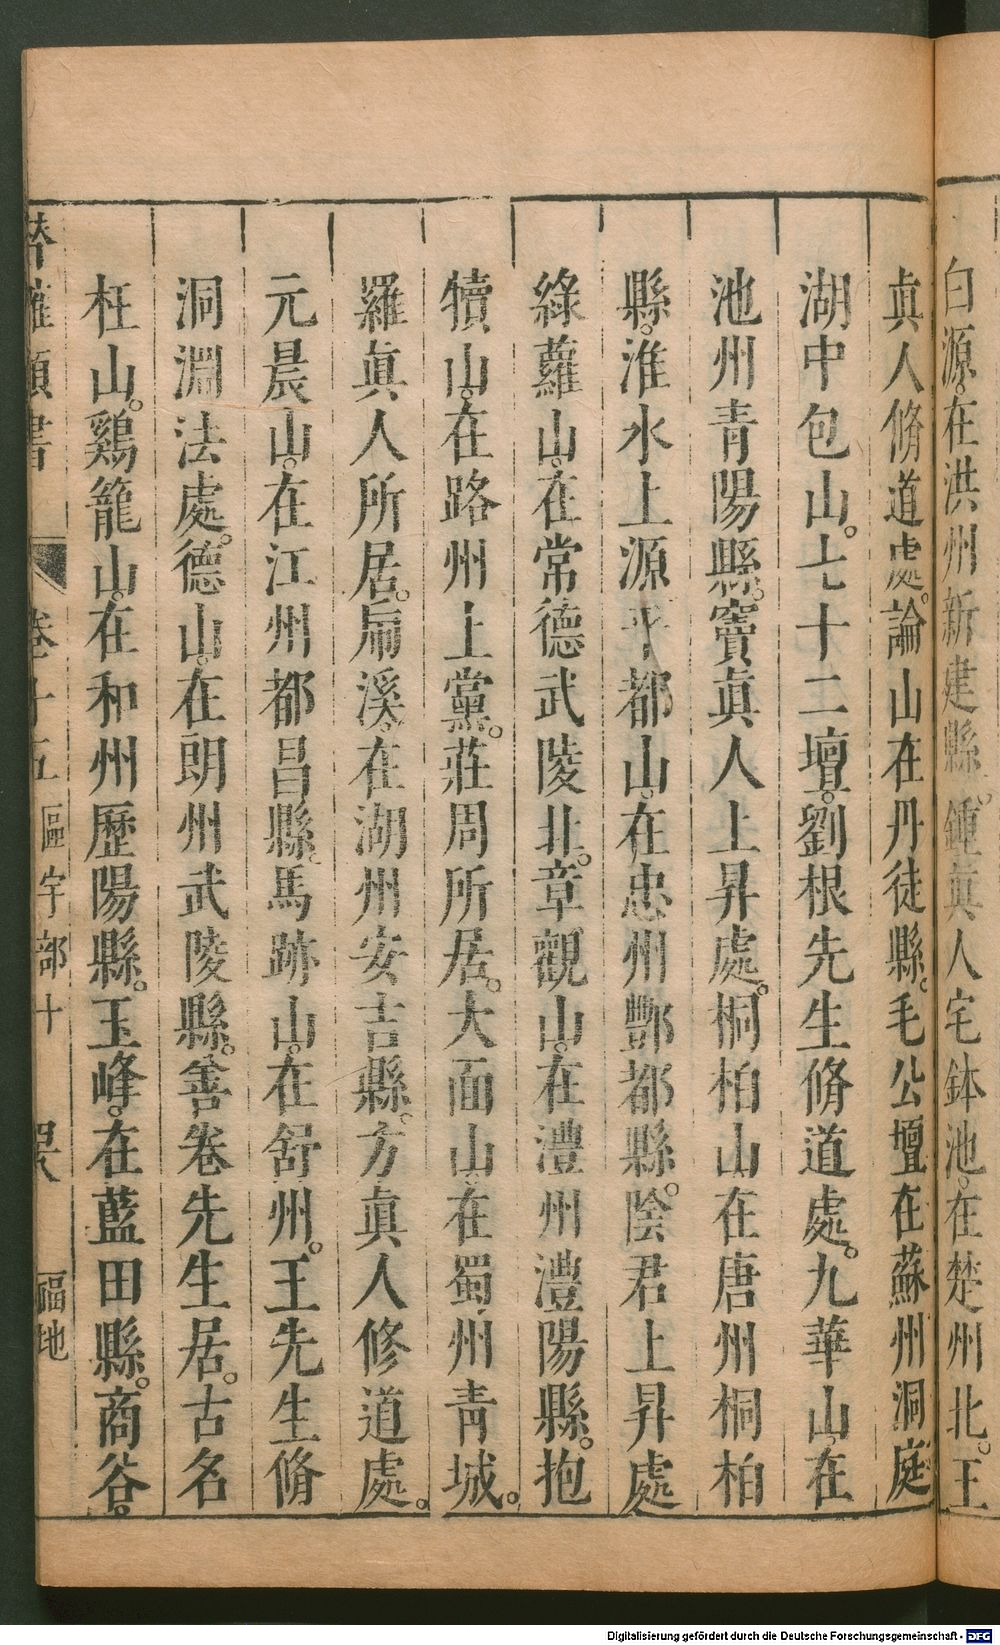 白源。在洪州新建縣。鍾真人宅鉢池。在楚州北。王
真人脩道處。論山在丹徒縣。毛公壇在蘇州洞庭
湖中包山。七十二壇。劉根先生脩道處。九華山。在
池州青陽縣。竇真人上昇處。桐柏山在唐州桐柏
縣。淮水上源平都山。在忠州酆都縣。陰君上昇處
綠蘿山。在常德武陵北。章觀山。在澧州澧陽縣。抱
犢山。在路州上黨。莊周所居。大面山在蜀州青城。
羅真人所居。扁溪。在湖州安吉縣。方真人修道處。
元晨山。在江州都昌縣。馬跡山。在舒州。王先生脩
洞淵法處。德山。在朗州武陵縣。善卷先生居。古名
枉山。鷄籠山。在和州歷陽縣。玉峰。在藍田縣。商谷。
卷十五 區宇部十 四八 福地
Digitalisierung gefördert durch die Deutsche Forschungsgemeinschaft - DFG